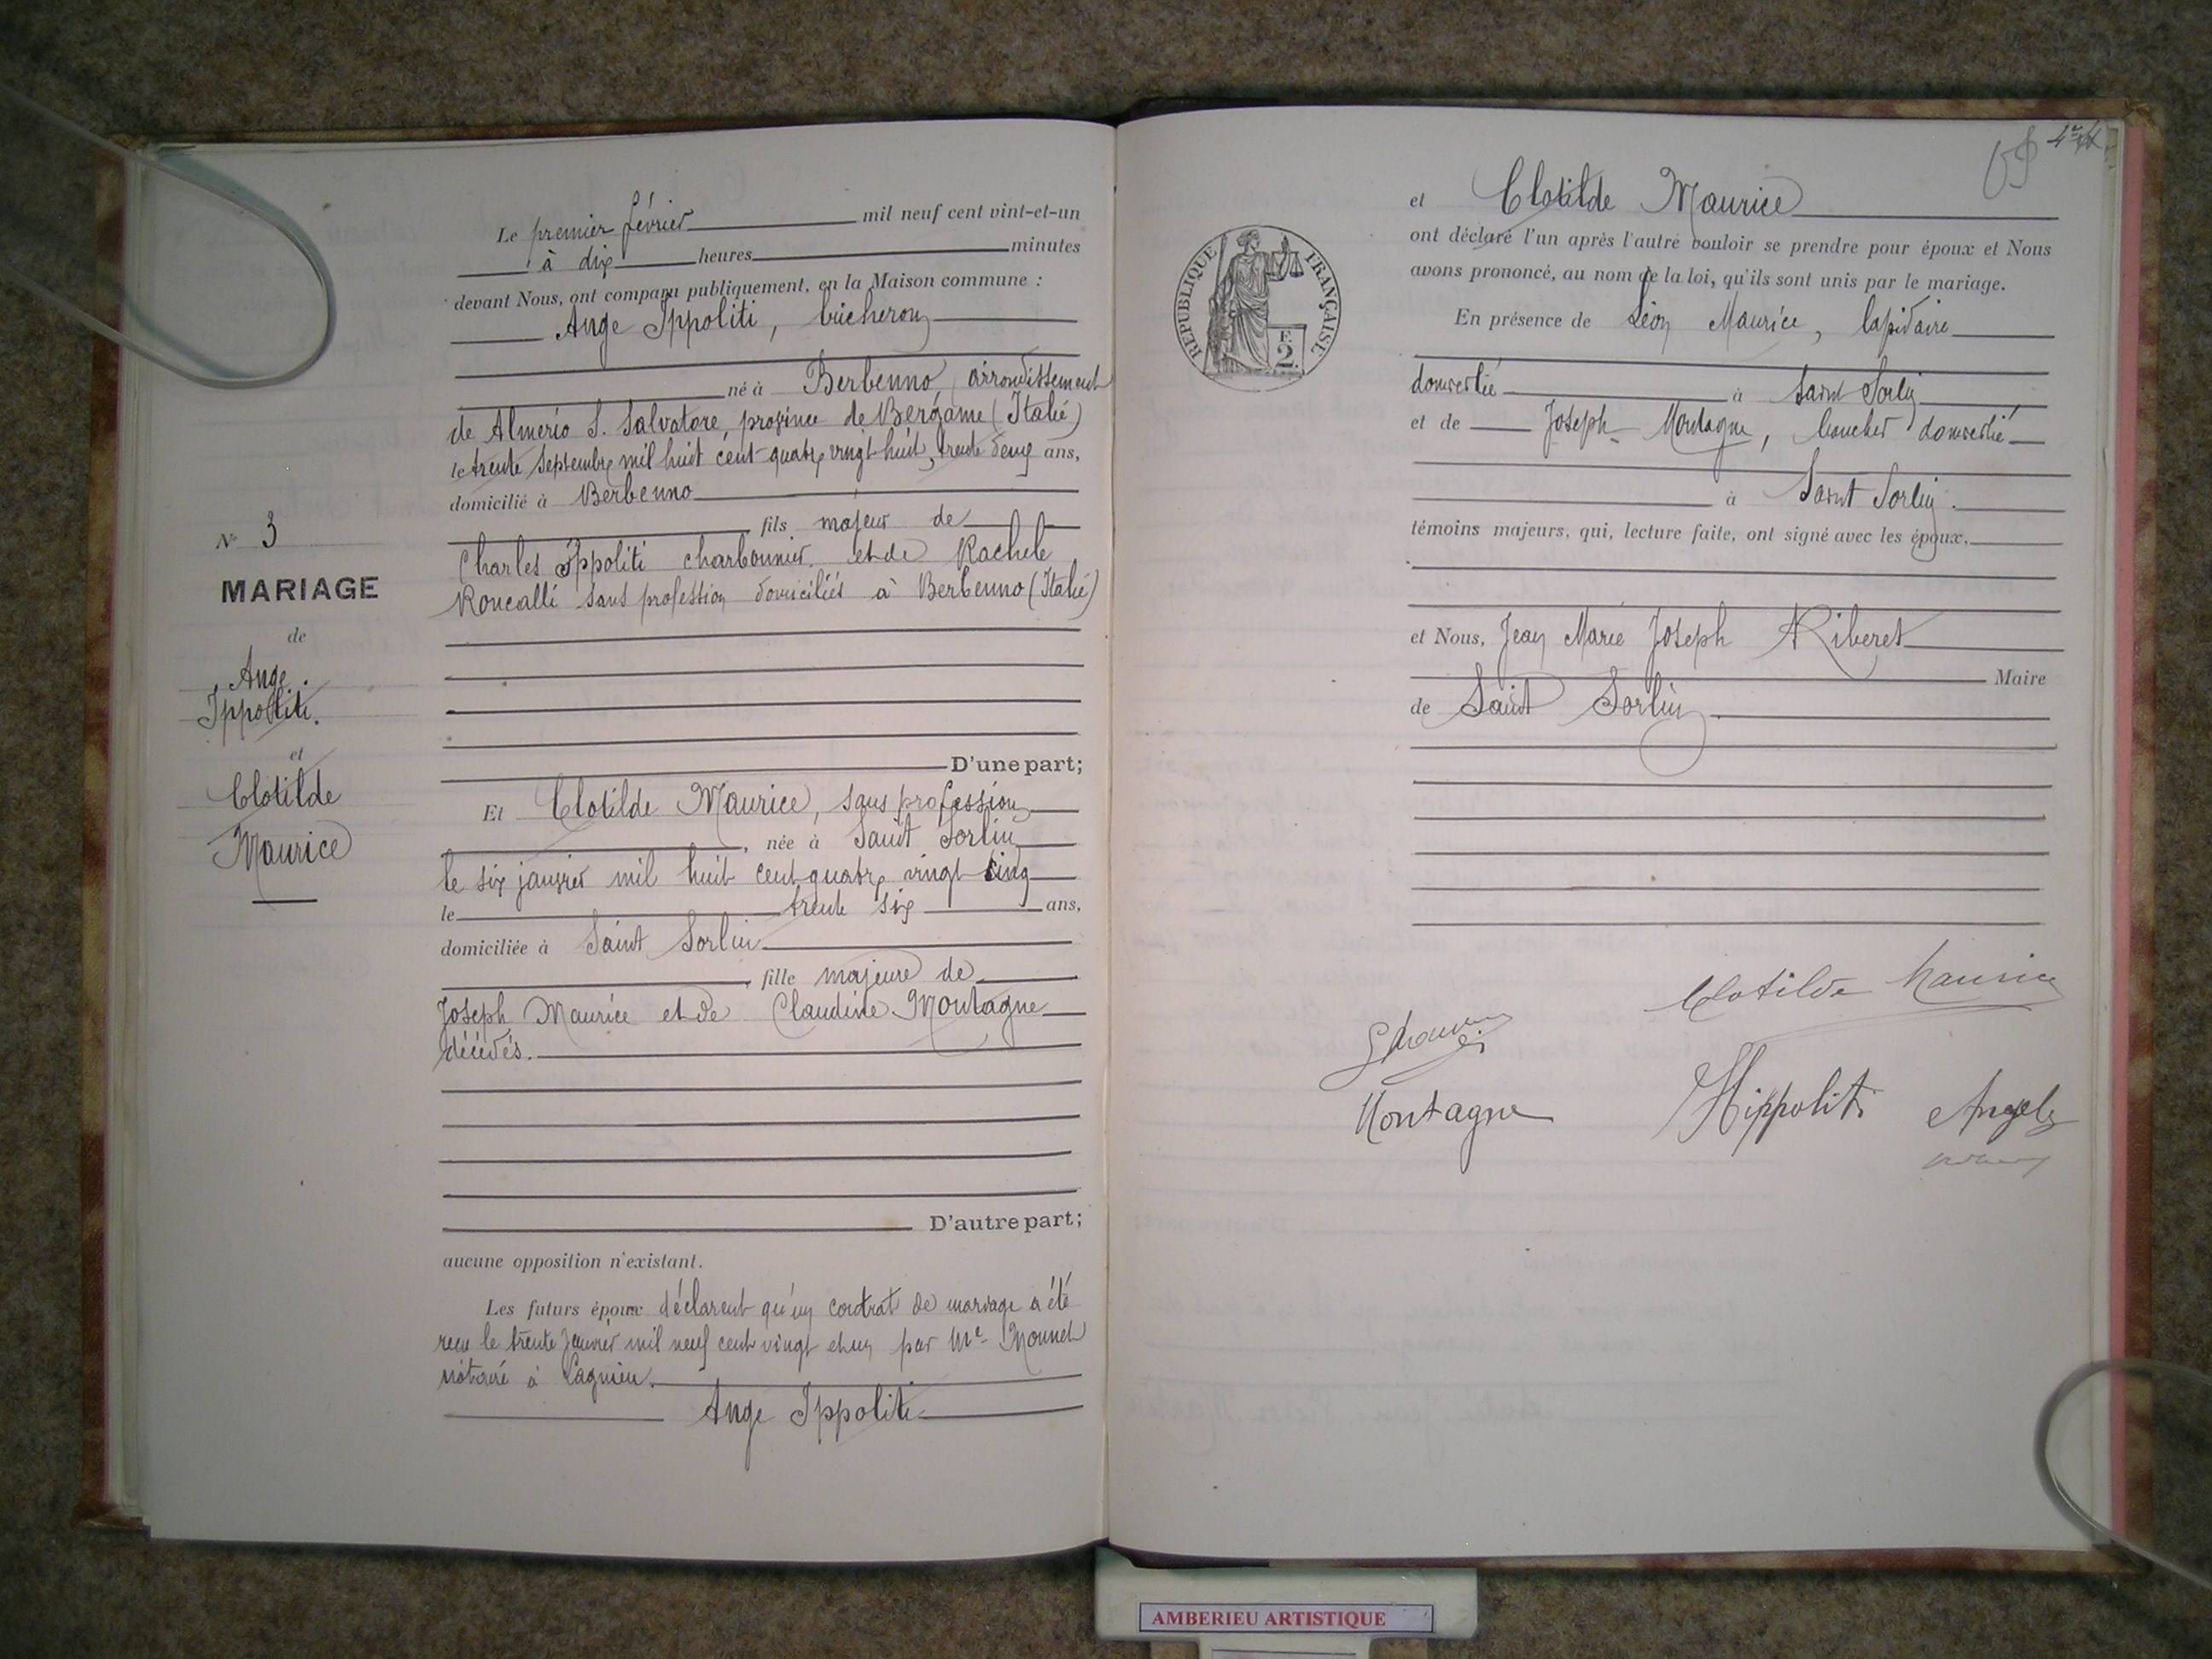 Le premier février mil neuf cent vint-et-un
à dix heures minutes
devant Nous, ont comparu publiquement, en la Maison commune :
Ange Ippoliti, bûcheron
né à Berbenno, arrondissement
de Almerio S. Salvatore, province de Bergame (Italie)
le trente Septembre mil huit cent quatre vingt huit, trente deux ans,
domicilié à Berbenno
fils majeur de
Charles Ippoliti charbonnier et de Rachele
Roncalli sans profession domiciliés à Berbenno (Italie)
D'une part;
Et Clotilde Maurice, sans profession
, née à Saint Sorlin
le six janvier mil huit cent quatre vingt cinq
le trente six ans,
domiciliée à Saint Sorlin
, fille majeure de
Joseph Maurice et de Claudine Montagne
décédés.
D'autre part;
aucune opposition n'existant.
Les futurs époux déclarent qu'un contrat de mariage a été
reçu le trente Janvier mil neuf cent vingt et un par Me Monnet
notaire à Lagnieu.
Ange Ippoliti
N° 3
MARIAGE
de
Ange
Ippoliti.
et
Clotilde
Maurice
RÉPUBLIQUE FRANÇAISE
F.
2
et Clotilde Maurice
ont déclaré l'un après l'autre vouloir se prendre pour époux et Nous
avons prononcé, au nom de la loi, qu'ils sont unis par le mariage.
En présence de Léon Maurice, lapidaire
domicilié à Saint Sorlin
et de Joseph Montagne, boucher domicilié
à Saint Sorlin.
témoins majeurs, qui, lecture faite, ont signé avec les époux.
et Nous, Jean Marie Joseph Riberet
Maire
de Saint Sorlin
Clotilde Maurice
Montagne
Hippoliti Angelo
AMBERIEU ARTISTIQUE